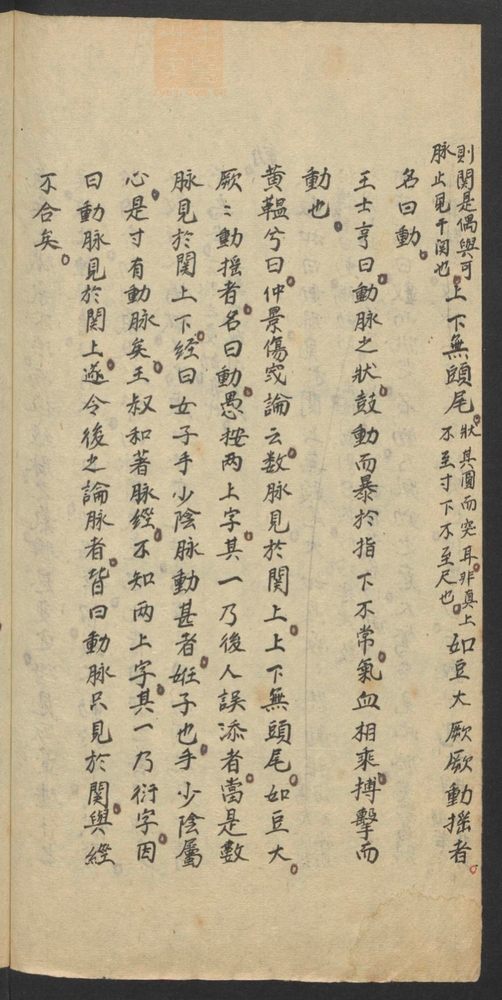 則関是偶與可
脉止見于関也
上下無頭尾
狀其圓而突耳非真上
不至寸下不至尺也
如豆大厥厥動搖者
名曰動
王士亨曰動脉之狀鼓動而暴於指下不常氣血相乘搏擊而
動也
黄韞兮曰仲景傷寒論云数脉見於関上上下無頭尾如豆大
厥〻動搖者名曰動愚按两上字其一乃後人誤添者當是數
脉見於関上下經曰女子手少陰脉動甚者姙子也手少陰屬
心是寸有動脉矣王叔和著脉經不知两上字其一乃衍字因
曰動脉見於関上遂令後之論脉者皆曰動脉只見於関與經
不合矣